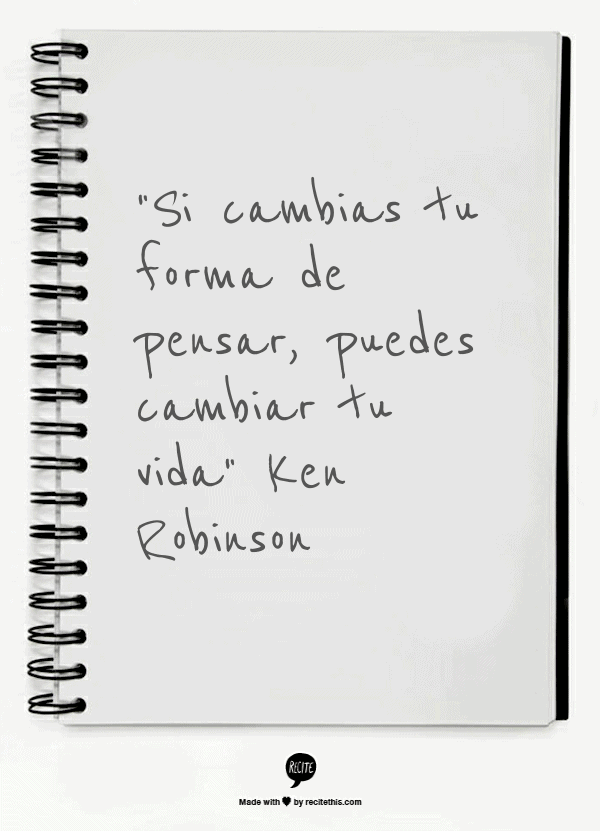 "Si cambias tu
forma de
pensar, puedes
cambiar tu
vida" Ken
Robinson
RECITE
Made with ♥ by recitethis.com